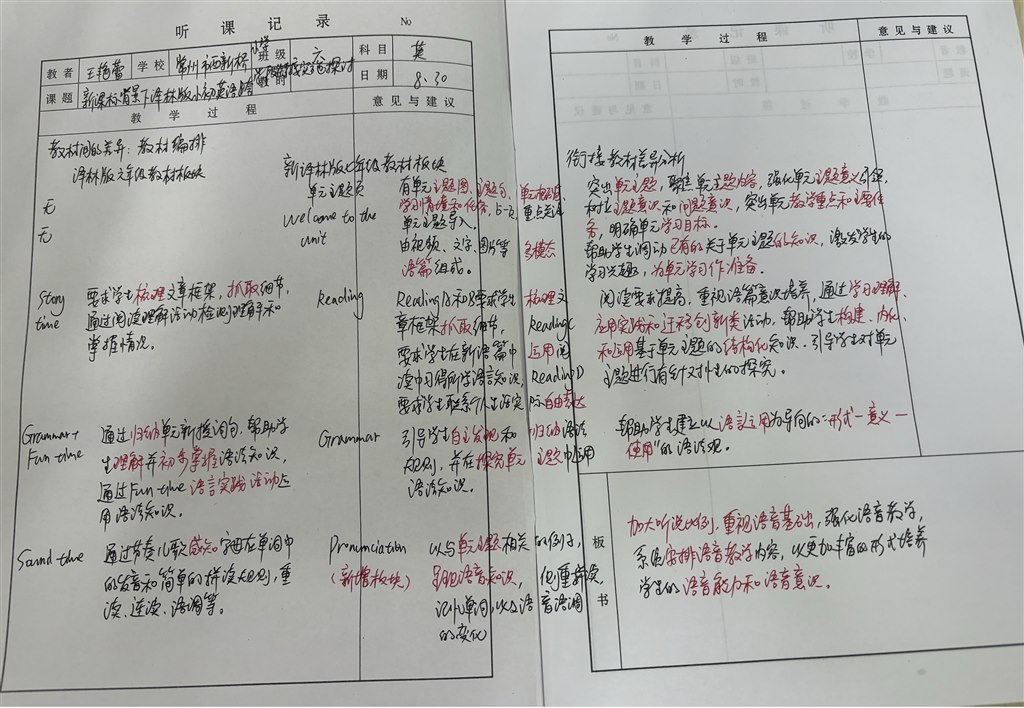 听课记录 No
教者 王艳蕾 学校 常州市西新桥小学 班级 六 科目 英
课题 新课标背景下译林版小初英语 课时 日期 8.30
教学过程 意见与建议
教材间的差异:教材编排
译林版六年级教材板块 新译林版七年级教材板块
无 单元主题页 有单元主题图、主题句、
学习情境和任务,
无 Welcome to the unit 单元主题导入。
由视频、文字、图片等 多模态
语篇组成。
Story time 要求学生梳理文章框架,抓取细节,
通过阅读理解活动检测理解和
掌握情况。
Reading Reading A和B要求学生 梳理文
章框架 抓取细节, Reading C
要求学生在新语篇中 运用阅
读中习得所学语言知识, Reading D
要求学生联系个人生活实 际自由表达
Grammar + Fun time 通过归纳单元新授词句,帮助学
生理解并初步掌握语法知识,
通过Fun time 语言实践活动运
用语法知识。
Grammar 引导学生自主发现和 归纳语法
规则,并在探究单元 主题中运用
语法知识。
Sound time 通过节奏儿歌感知字母在单词中
的发音和简单的拼读规则,重
读、连读、语调等。
Pronunciation 以与单元主题相关 的例子,
(新增板块) 语音知识, 侧重拼读,
识记单词,以及语 音语调
的变化
教学过程 意见与建议
衔接教材差异分析
突出单元主题,聚焦单元主题内容,强化单元主题意义引领,
树立主题意识和问题意识,突出单元教学重点和主题任
务,明确单元学习目标。
帮助学生调动已有的关于单元主题的知识,激发学生的
学习兴趣,为单元学习作准备。
阅读要求提高,重视语篇意识培养,通过学习理解、
应用实践和迁移创新类活动,帮助学生构建、内化
和运用基于单元主题的结构化知识。引导学生对单元
主题进行有针对性的探究。
帮助学生建立以语言运用为导向的"形式—意义—
使用"的语法观。
板书
加大听说比例,重视语音基础,强化语音教学,
系统安排语音教学内容,以更加丰富的形式培养
学生的语音能力和语音意识。